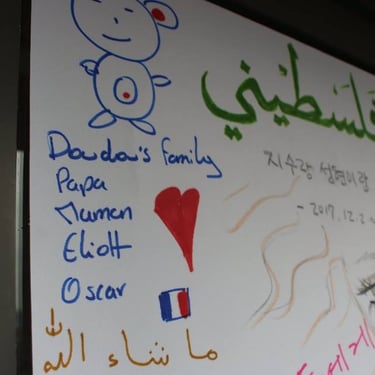 فلسطيني
Doudou's family
Papa
Maman
Eliott
Oscar
지수랑 성현이랑
- 2017.12.2
ما شاء الله